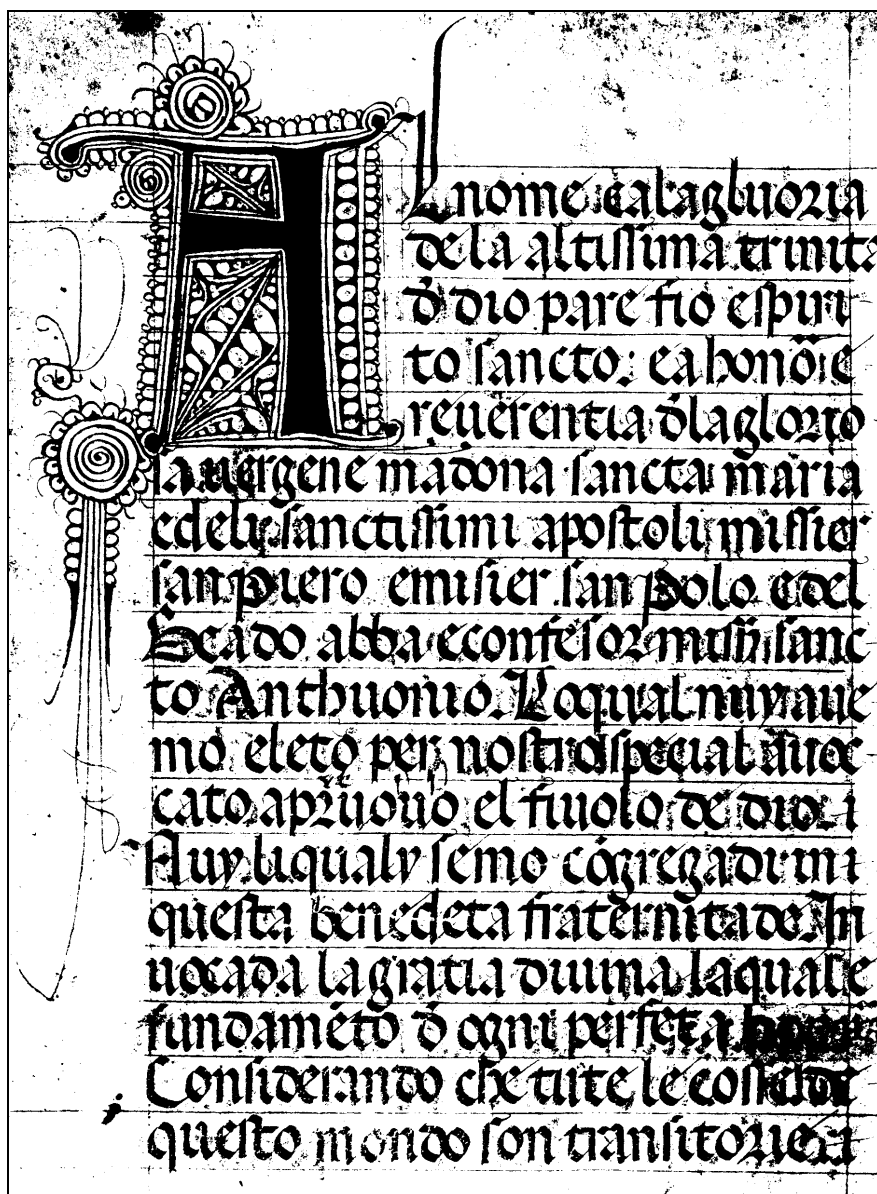 AL nome e a la gluoria
de la altissima trinita
d̄ dio pare fio e spiri
to sancto: e a honōr e
reverentia d̄ la glorio
sa vergene madona sancta maria
e deli sanctissimi apostoli missier
san piero e misier san polo e del
beado abba e confesor sanc
to Anthuonio. Lo qual nuy ave
mo eleto per nostro special avoc
cato apruovo el fiuolo de dio.
Nuy li qualy semo cōgregadi in
questa benedeta fraternitade. In
vocada la gratia divina la qual e
fundamēto d̄ ogni perfeta
Considerando che tute le cosse de
questo mondo son transitorie